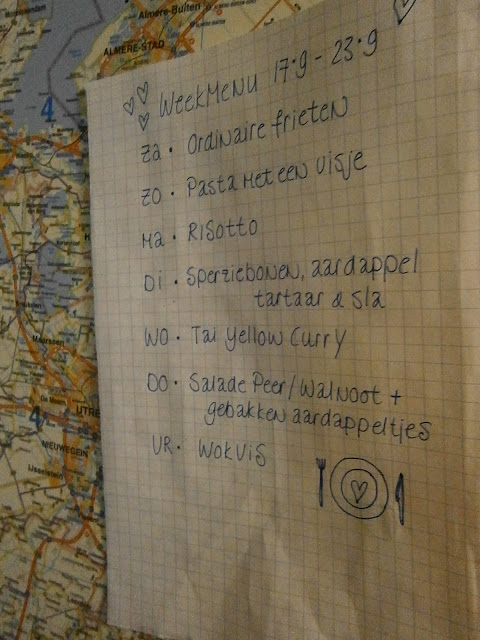 Almere-Buiten
ALMERE-STAD
4
WeekMenu 17.9 - 23.9
Za. Ordinaire frieten
ZO. Pasta Met een visje
Ma. Risotto
Di. Sperziebonen, aardappel
tartaar & sla
WO. Tai Yellow Curry
DO. Salade Peer/Walnoot +
gebakken aardappeltjes
VR. Wokvis
Maarssen
4
UTRE
NIEUWEGEIN
IJsselstein